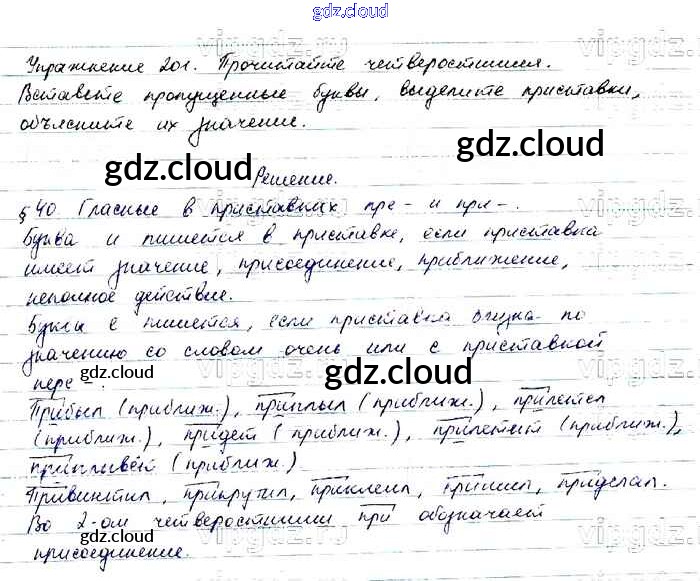 gdz.cloud
vipgdz.ru
Упражнение 201. Прочитайте четверостишия.
Вставьте пропущенные буквы, выделите приставки,
объясните их значение.
gdz.cloud
gdz.cloud
Решение.
§ 40 Гласные в приставках пре- и при-.
Буква и пишется в приставке, если приставка
имеет значение, присоединение, приближение,
неполное действие.
Буквы е пишется, если приставка близка по
значению со словом очень или с приставкой
пере-.
gdz.cloud
gdz.cloud
Прибыл (приближ.), приплыл (приближ.), прилетел
(приближ.), придет (приближ.), прилетит (приближ.),
приплывёт (приближ.)
Привинтил, прикрутил, приклеил, пришил, приделал.
Во 2-ом четверостишии при обозначает
присоединение.
gdz.cloud